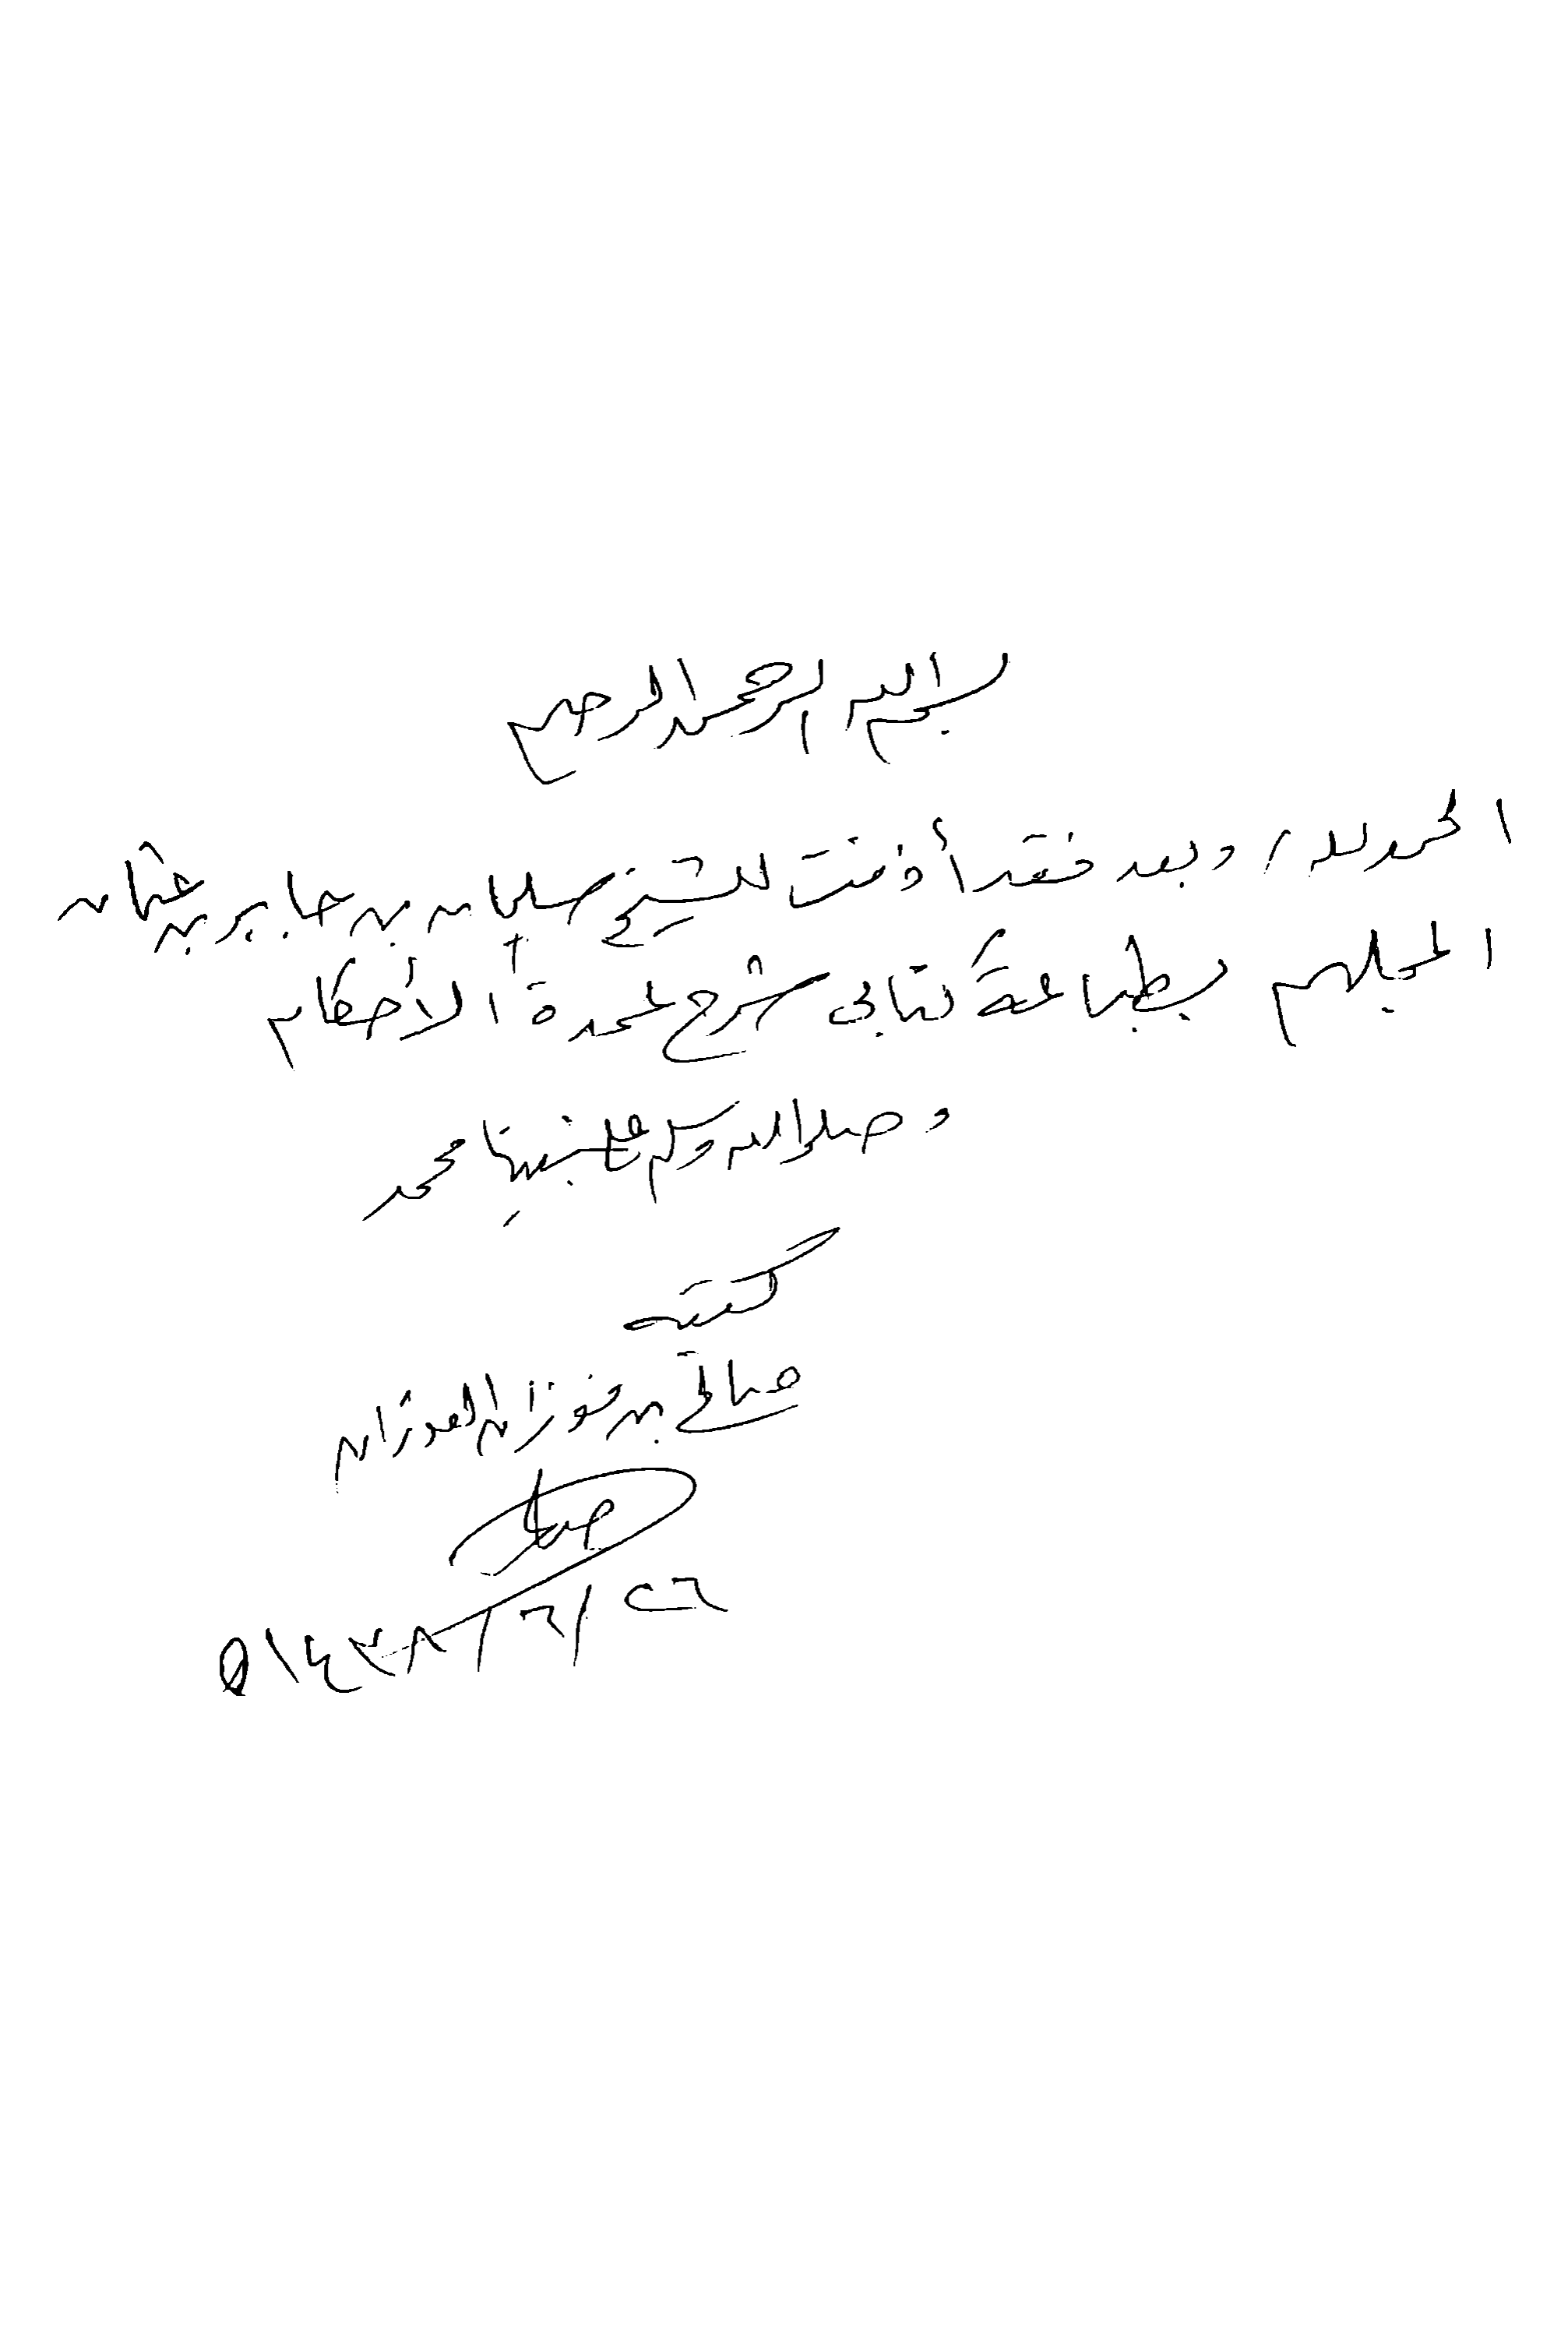 بسم الله الرحمن الرحيم
الحمد لله / وبعد فقد أذنت للشيخ سليمان بن جابر بن عثمان
المجلهم بطباعة كتابي شرح عمدة الأحكام
وصلى الله وسلم على نبينا محمد
كتبه
صالح بن فوزان الفوزان
٢٦/٦/١٤٣٨ه